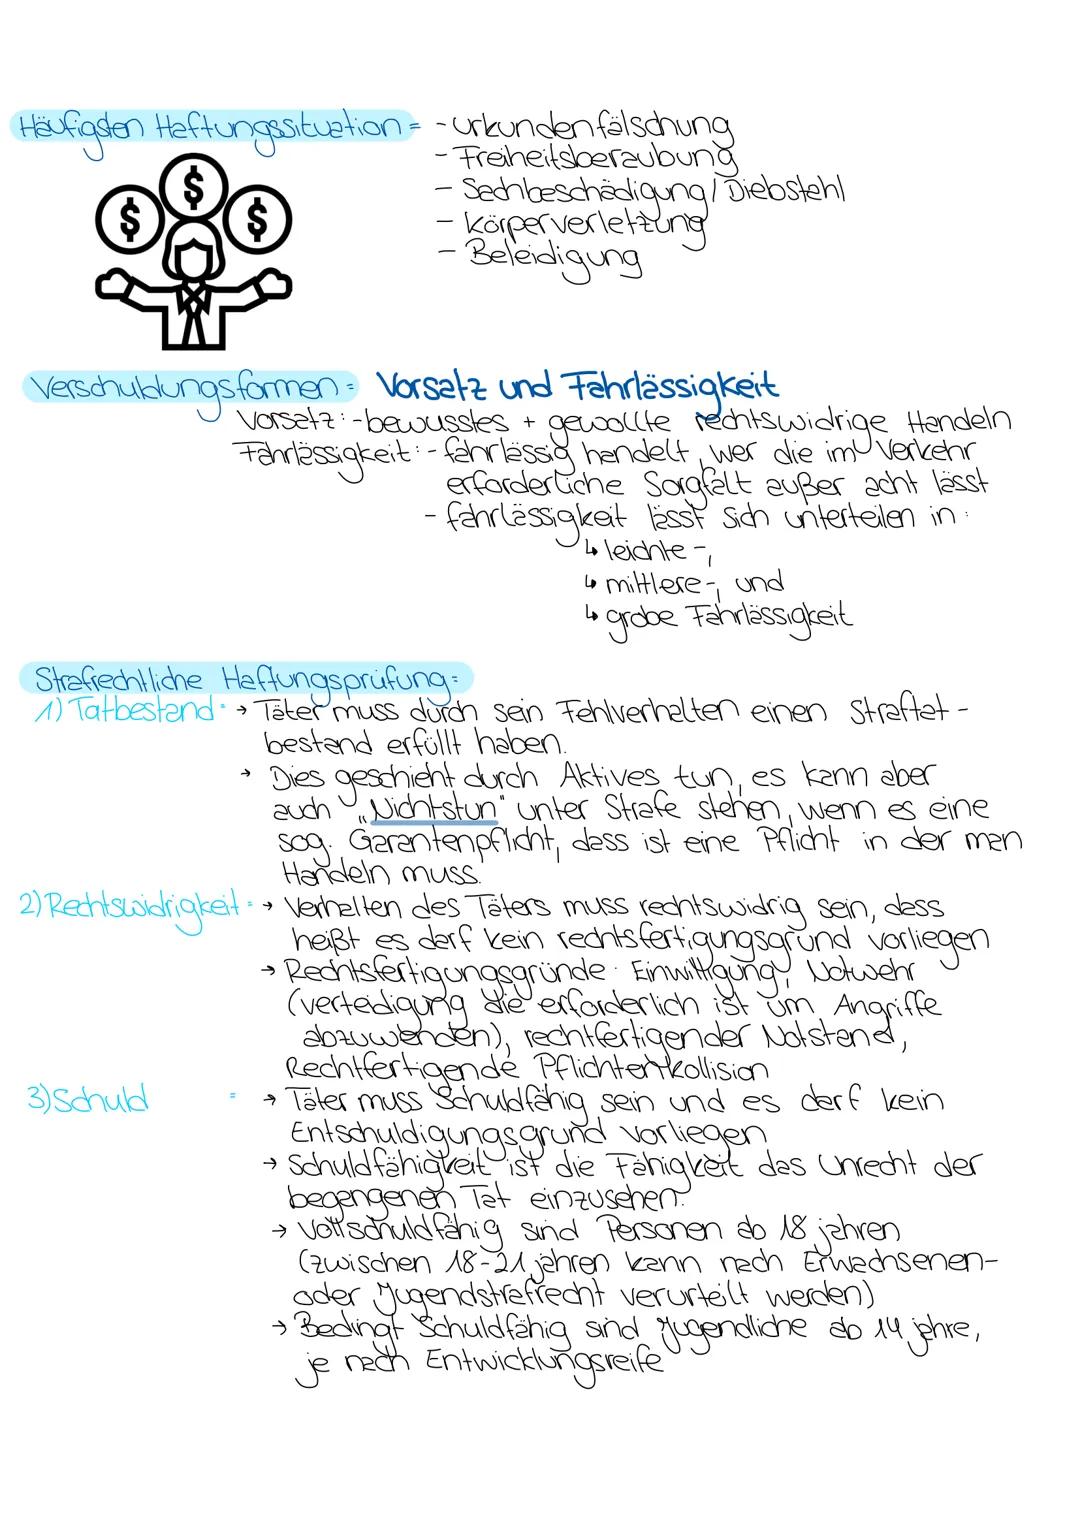 Häufigsten Haftungssituation = - urkundenfälschung
- Freiheitsberaubung
- Sachbeschädigung / Diebstahl
- körperverletzung
- Beleidigung
$ $ $
Verschuldungsformen = Vorsatz und Fahrlässigkeit
Vorsatz: - bewusstes + gewollte rechtswidrige Handeln
Fahrlässigkeit: - fahrlässig handelt, wer die im Verkehr
erforderliche Sorgfalt außer acht lässt
- fahrlässigkeit lässt sich unterteilen in:
↳ leichte -,
↳ mittlere -, und
↳ grobe Fahrlässigkeit
Strafrechtliche Haftungsprüfung:
1) Tatbestand = → Täter muss durch sein Fehlverhalten einen Straftat -
bestand erfüllt haben.
→ Dies geschieht durch Aktives tun, es kann aber
auch „Nichtstun" unter Strafe stehen, wenn es eine
sog. Garantenpflicht, dass ist eine Pflicht in der man
Handeln muss.
2) Rechtswidrigkeit = → Verhalten des Täters muss rechtswidrig sein, dass
heißt es darf kein rechtsfertigungsgrund vorliegen
→ Rechtsfertigungsgründe: Einwilligung, Notwehr
(verteidigung die erforderlich ist um Angriffe
abzuwenden), rechtfertigender Notstand,
Rechtfertigende Pflichtenkollision
3) Schuld = → Täter muss Schuldfähig sein und es darf kein
Entschuldigungsgrund vorliegen
→ Schuldfähigkeit ist die Fähigkeit das Unrecht der
begangenen Tat einzusehen.
→ Vollschuldfähig sind Personen ab 18 jahren
(zwischen 18-21 jahren kann nach Erwachsenen-
oder Jugendstrafrecht verurteilt werden)
→ Bedingt Schuldfähig sind Jugendliche ab 14 jahre,
je nach Entwicklungsreife